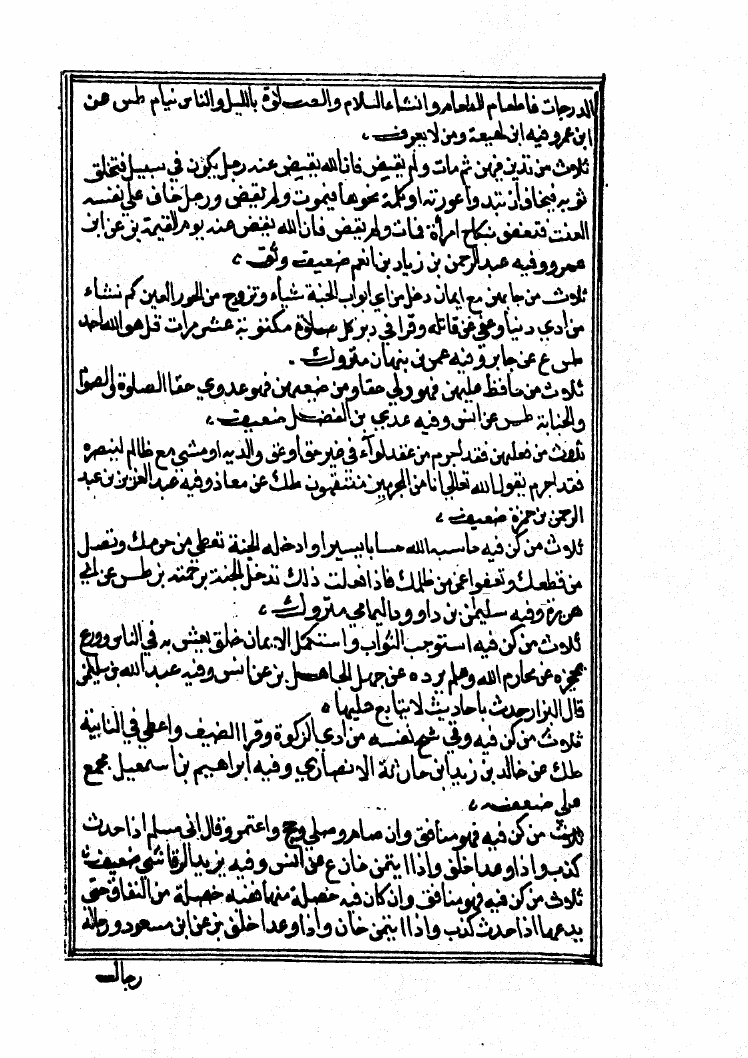 الدرجات فاطعام الطعام وانشاء السلام والصلوة بالليل والناس نيام طس عن
ابن عمرو فيه ابن لهيعة ومن لا يعرف
ثلاث من تدين فيهن ثم مات ولم يقبض فان الله يقبض عنه رجل يكون في سبيل فيخلق
ثوبه فيخاف ان تبدوا عورته او كلمة نحوها فيموت ولم يقبض ورجل خاف على نفسه
العنت فتعفف بنكاح امرأة فمات ولم يقبض فان الله يقبض عنه يوم القيمة بز عن ابن
عمرو وفيه عبد الرحمن بن زياد بن انعم ضعيف وثق
ثلاث من جاء بهن مع ايمان دخل من اي ابواب الجنة شاء وتزوج من الحور العين كم نشاء
من ادى دينا وعفى عن قاتله وقرا في دبر كل صلوة مكتوبة عشر مرات قل هو الله احد
طس ع عن جابر وفيه عمر بن نبهان متروك
ثلاث من حافظ عليهن فهو ولي حقا ومن ضيعهن فهو عدوي حقا الصلوة والصوم
والجنابة طس عن انس وفيه عدي بن الفضل ضعيف
ثلاث من فعلهن فقد اجرم من عقد لواء في غير حق او عق والديه او مشى مع ظالم لينصره
فقد اجرم يقول الله تعالى انا من المجرمين منتقمون طك عن معاذ وفيه عبد العزيز بن عبد
الرحمن بن حمزة ضعيف
ثلاث من كن فيه حاسبه الله حسابا يسيرا وادخله الجنة تعطي من حرمك وتصل
من قطعك وتعفوا عن من ظلمك فاذا فعلت ذلك تدخل الجنة برحمته بز طس عن ابي
هريرة وفيه سليمن بن داوود اليمامي متروك
ثلاث من كن فيه استوجب الثواب واستكمل الايمان خلق يعيش به في الناس وورع
يحجزه عن محارم الله وحلم يرده عن جهل الجاهل بز عن انس وفيه عبد الله بن سليمن
قال البزار حدث باحاديث لا يتابع عليها
ثلاث من كن فيه وقي شح نفسه من ادى الزكوة وقرا الضيف واعطى في النايبة
طك عن خالد بن زيد ابن حارثة الانصاري وفيه ابراهيم بن اسمعيل مجمع
على ضعفه
ثلاث من كن فيه فهو منافق وان صام وصلى وحج واعتمر وقال اني مسلم اذا حدث
كذب واذا وعد اخلف واذا ايتمن خان ع عن انس وفيه يزيد الرقاشي ضعيف
ثلاث من كن فيه فهو منافق وان كان فيه خصلة منها ففيه خصلة من النفاق حتى
يدعها اذا حدث كذب واذا ايتمن خان واذا وعد اخلف بز عن ابن مسعود ورجاله
رجال